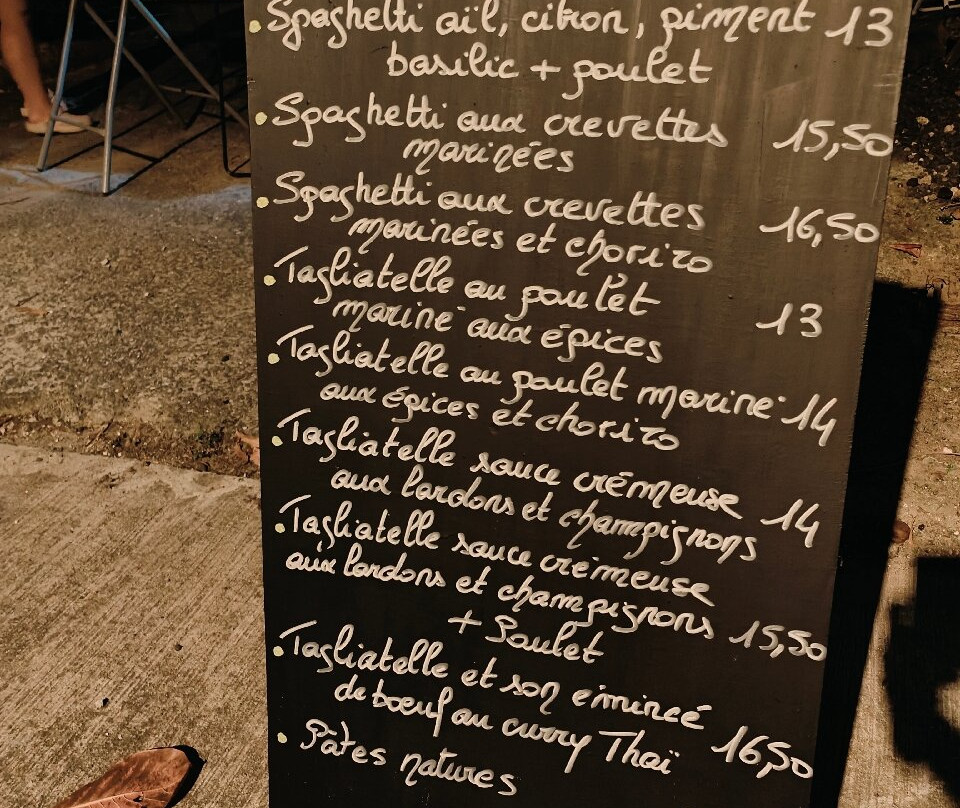 • Spaghetti aïl, citron, piment 13
basilic + poulet
• Spaghetti aux crevettes 15,50
marinées
• Spaghetti aux crevettes 16,50
marinées et chorizo
• Tagliatelle au poulet 13
mariné aux épices
• Tagliatelle au poulet mariné 14
aux épices et chorizo
• Tagliatelle sauce crémeuse 14
aux lardons et champignons
• Tagliatelle sauce crémeuse
aux lardons et champignons 15,50
+ Poulet
• Tagliatelle et son émincé
de bœuf au curry Thaï 16,50
• Pâtes natures